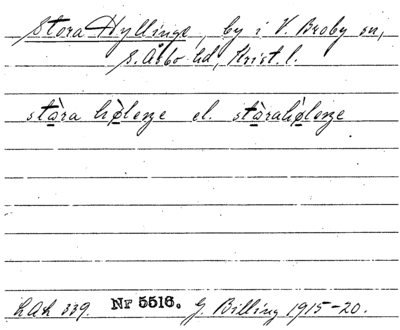 Stora Hyllinge, by i V. Broby sn,
S. Åsbo hd, Krist. l.
stɷ̀ra hø̀leŋe el. stɷ̀rahø̀leŋe
LAL 339. Nr 5516. G. Billing 1915-20.